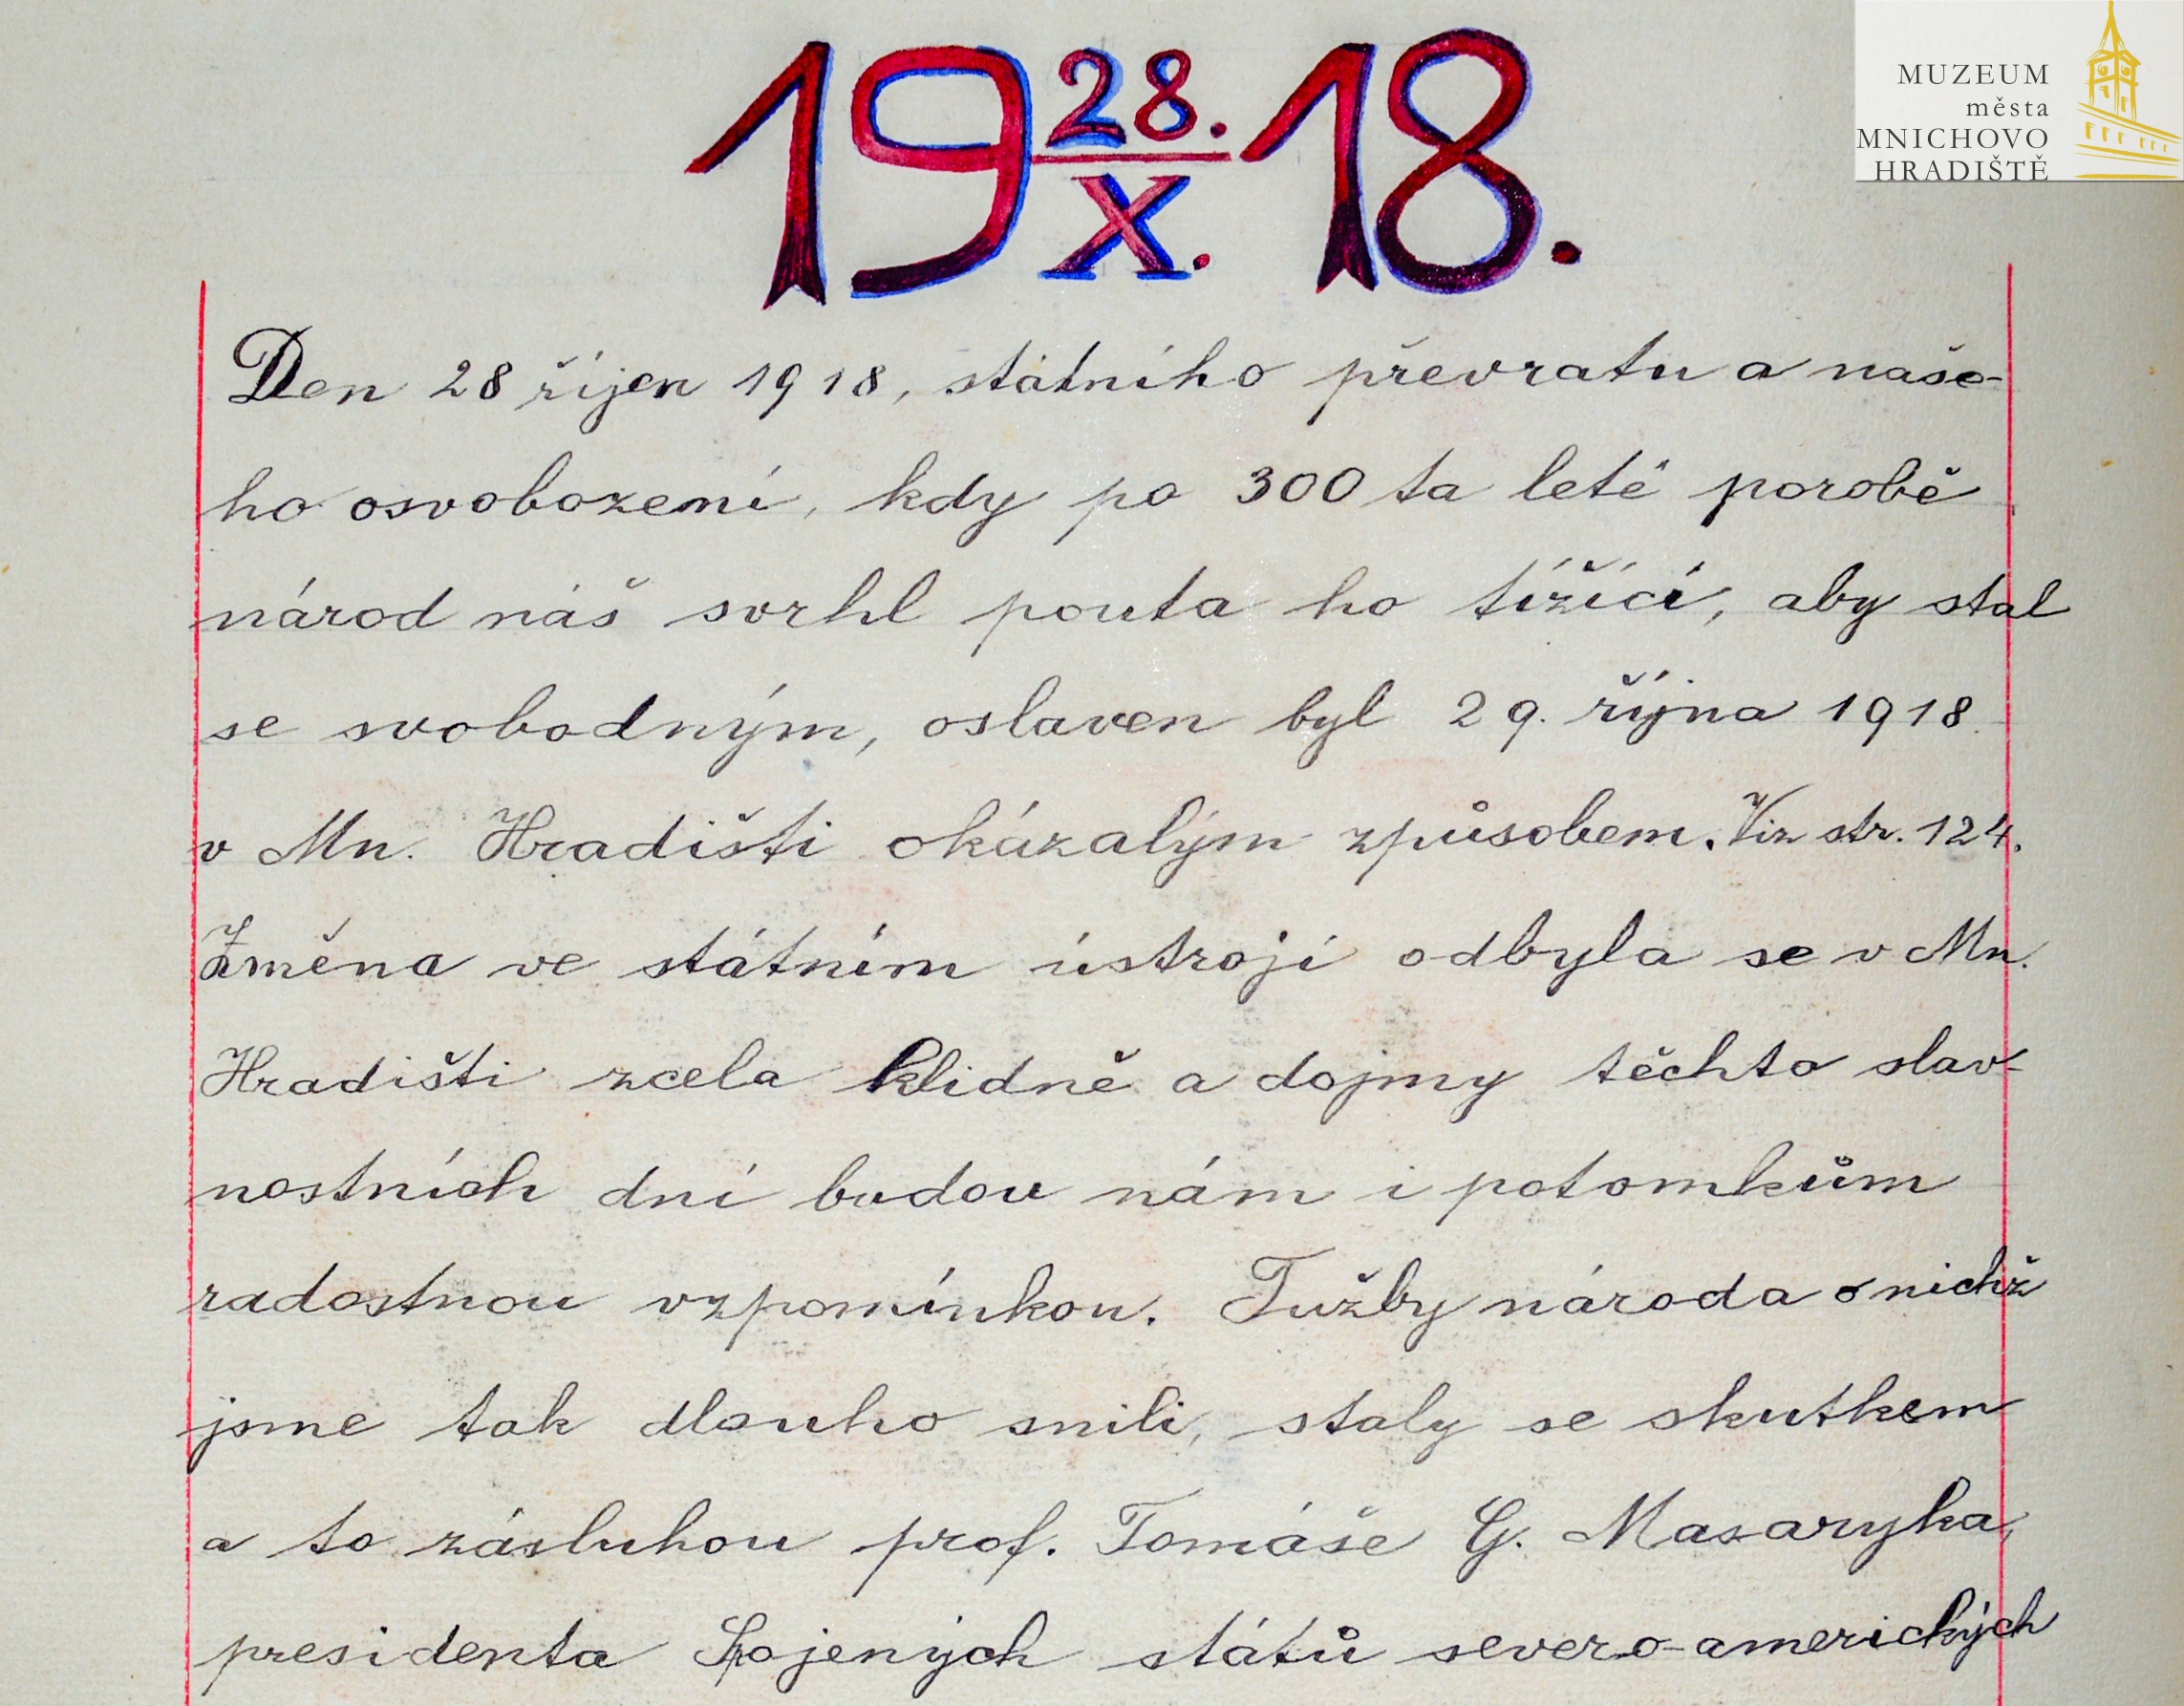 19 28./X. 18.
MUZEUM
města
MNICHOVO
HRADIŠTĚ
Den 28 říjen 1918, státního převratu a naše-
ho osvobození, kdy po 300 ta leté porobě
národ náš svrhl pouta ho tížící, aby stal
se svobodným, oslaven byl 29. října 1918
v Mn. Hradišti okázalým způsobem. Viz str. 124.
Změna ve státním ústrojí odbyla se v Mn.
Hradišti zcela klidně a dojmy těchto slav-
nostních dní budou nám i potomkům
radostnou vzpomínkou. Tužby národa o nichž
jsme tak dlouho snili, staly se skutkem
a to zásluhou prof. Tomáše G. Masaryka,
presidenta Spojených států severo-amerických